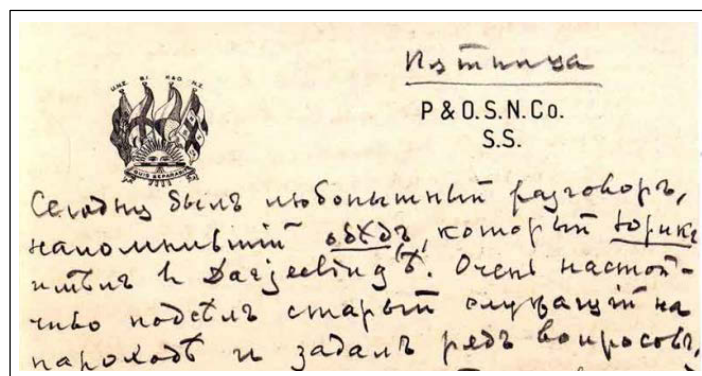 Пятница
P & O. S. N. Co.
S.S.
QUIS SEPARABIT
Сегодня былъ любопытный разговоръ,
напомнившій обѣдъ, который Юрикъ
имѣлъ в Darjeelingѣ. Очень настой-
чиво подсѣлъ старый служащій на
пароходѣ и задалъ рядъ вопросовъ,